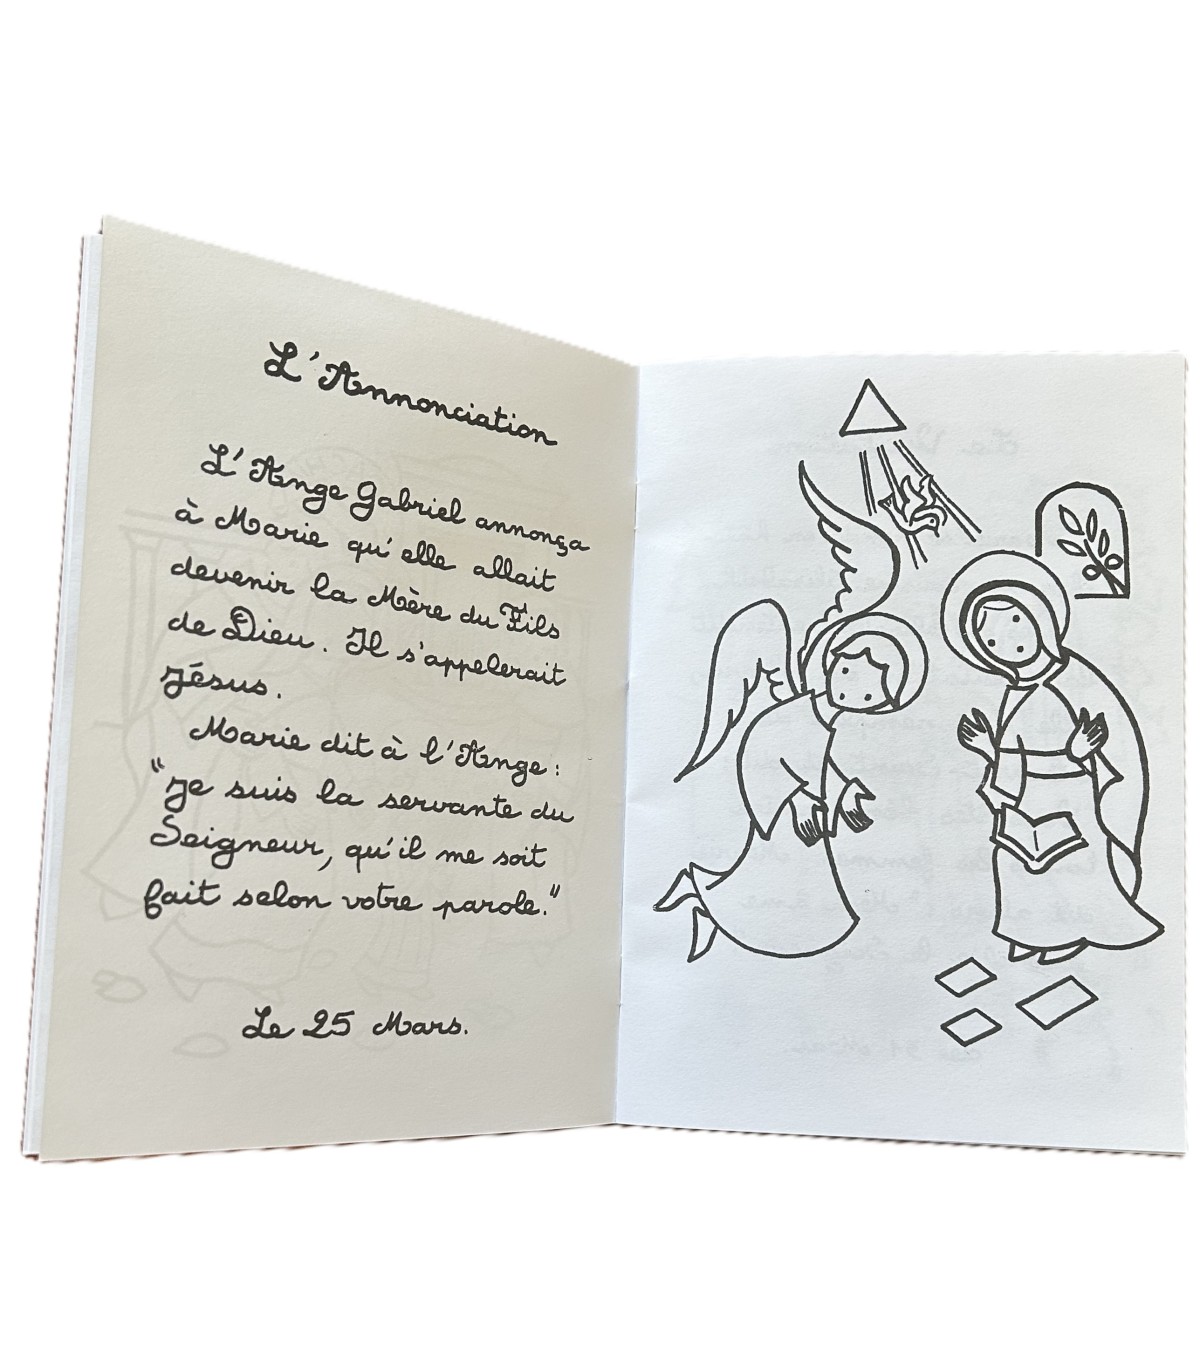 L'Annonciation
L'Ange Gabriel annonça
à Marie qu'elle allait
devenir la Mère du Fils
de Dieu. Il s'appelerait
Jésus.
Marie dit à l'Ange :
"Je suis la servante du
Seigneur, qu'il me soit
fait selon votre parole."
Le 25 Mars.